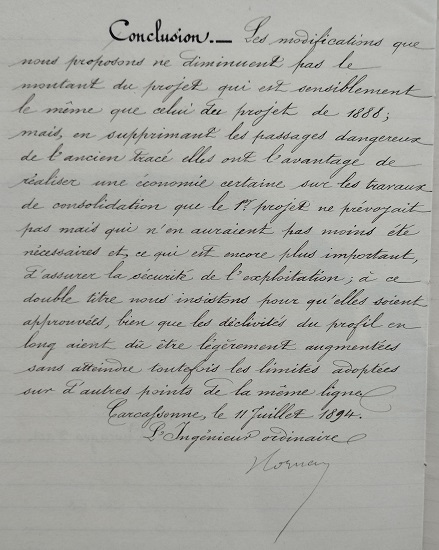 Conclusion._ Les modifications que
nous proposons ne diminuent pas le
montant du projet qui est sensiblement
le même que celui du projet de 1888;
mais, en supprimant les passages dangereux
de l'ancien tracé elles ont l'avantage de
réaliser une économie certaine sur les travaux
de consolidation que le 1er projet ne prévoyait
pas mais qui n'en auraient pas moins été
nécessaires et, ce qui est encore plus important,
d'assurer la sécurité de l'exploitation; à ce
double titre nous insistons pour qu'elles soient
approuvées, bien que les déclivités du profil en
long aient dû être légèrement augmentées
sans atteindre toutefois les limites adoptées
sur d'autres points de la même ligne
Carcassonne, le 11 Juillet 1894.
L'Ingénieur ordinaire